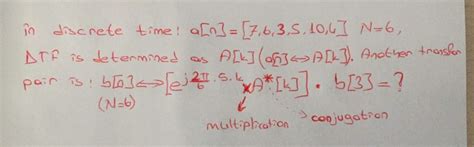 in discrete time: a[n]=[7,6,3,5,10,6] N=6,
DTF is determined as A[k] (a[n]⇔A[k]). Another transfer
pair is: b[n]⇔[e^{j 2π/6 . 5 . k} x A*[k]] . b[3]=?
(N=6)
multiplication conjugation